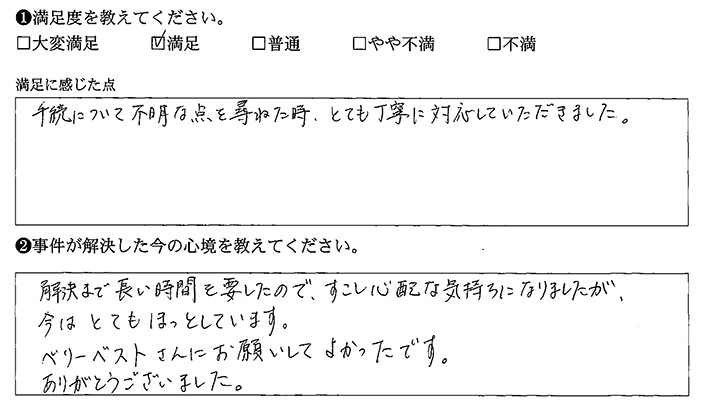 ❶満足度を教えてください。
□大変満足 ☑満足 □普通 □やや不満 □不満
満足に感じた点
手続について不明な点を尋ねた時、とても丁寧に対応していただきました。
❷事件が解決した今の心境を教えてください。
解決まで長い時間を要したので、すこし心配な気持ちになりましたが、
今はとてもほっとしています。
ベリーベストさんにお願いしてよかったです。
ありがとうございました。